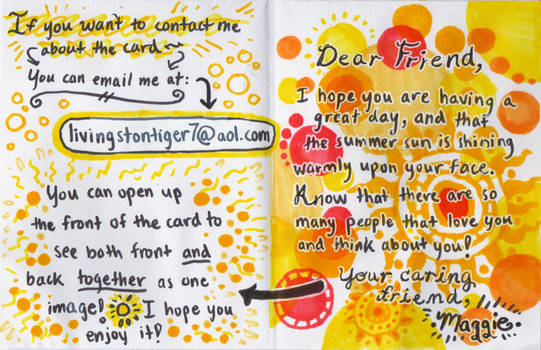 If you want to contact me
about the card
You can email me at:
livingstontiger7@aol.com
You can open up
the front of the card to
see both front and
back together as one
image! I hope you
enjoy it!
Dear Friend,
I hope you are having a
great day, and that
the summer sun is shining
warmly upon your face.
Know that there are so
many people that love you
and think about you!
Your caring
friend,
Maggie